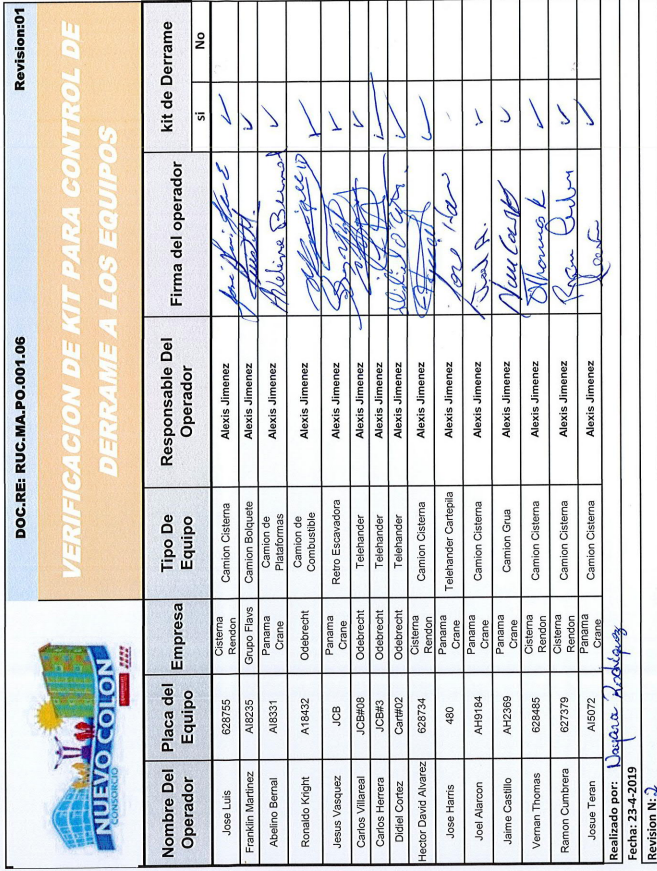 DOC.RE: RUC.MA.PO.001.06 Revision:01
NUEVO COLON
CONSORCIO
VERIFICACION DE KIT PARA CONTROL DE
DERRAME A LOS EQUIPOS
Nombre Del Operador Placa del Equipo Empresa Tipo De Equipo Responsable Del Operador Firma del operador kit de Derrame
si No
Jose Luis 628755 Cisterna Rendon Camion Cisterna Alexis Jimenez
Franklin Martinez AI8235 Grupo Flavs Camion Bolquete Alexis Jimenez
Abelino Bernal AI8331 Panama Crane Camion de Plataformas Alexis Jimenez Abelino Bernal
Ronaldo Kright A18432 Odebrecht Camion de Combustible Alexis Jimenez
Jesus Vasquez JCB Panama Crane Retro Escavadora Alexis Jimenez
Carlos Villareal JCB#08 Odebrecht Telehander Alexis Jimenez
Carlos Herrera JCB#3 Odebrecht Telehander Alexis Jimenez
Didiel Cortez Cart#02 Odebrecht Telehander Alexis Jimenez
Hector David Alvarez 628734 Cisterna Rendon Camion Cisterna Alexis Jimenez
Jose Harris 480 Panama Crane Telehander Cartepila Alexis Jimenez
Joel Alarcon AH9184 Panama Crane Camion Cisterna Alexis Jimenez
Jaime Castillo AH2369 Panama Crane Camion Grua Alexis Jimenez
Vernan Thomas 628485 Cisterna Rendon Camion Cisterna Alexis Jimenez
Ramon Cumbrera 627379 Cisterna Rendon Camion Cisterna Alexis Jimenez
Josue Teran AI5072 Panama Crane Camion Cisterna Alexis Jimenez
Realizado por: Rodriguez
Fecha: 23-4-2019
Revision N: 2